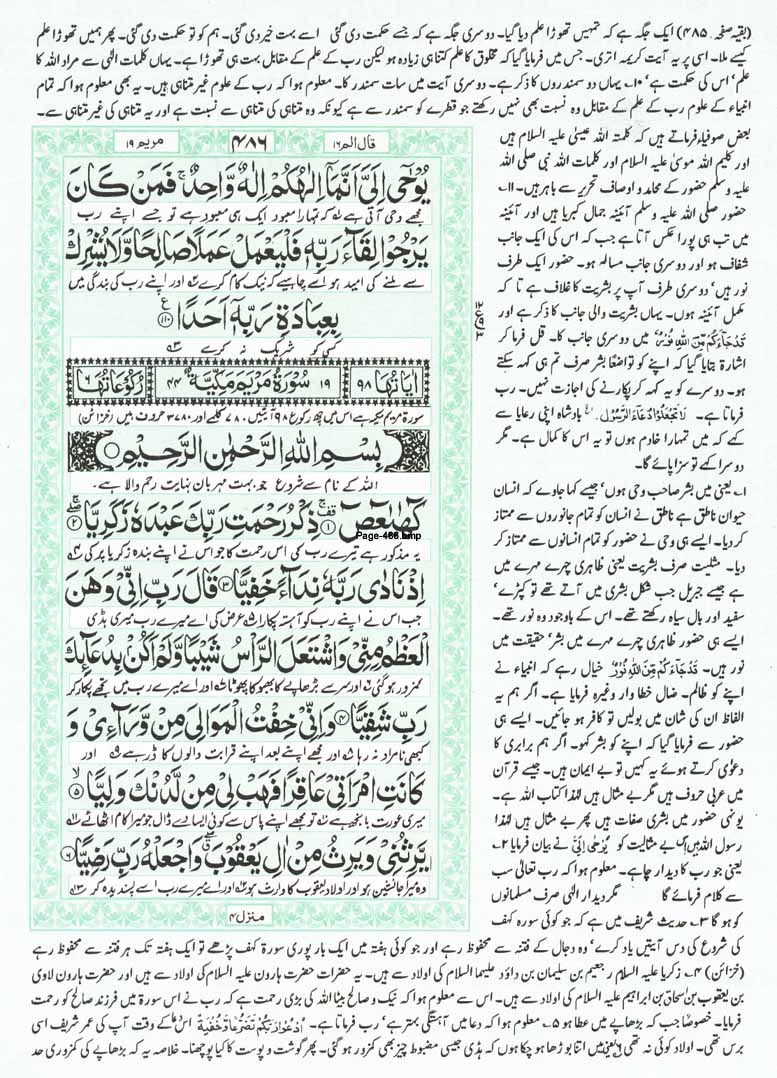 (بقیہ صفحہ ۴۸۵) ایک جگہ ہے کہ تمہیں تھوڑا علم دیا گیا۔ دوسری جگہ ہے کہ جسے حکمت دی گئی اسے بہت خیر دی گئی۔ ہم کو تو حکمت دی گئی۔ پھر ہمیں تھوڑا علم
کیسے ملا۔ اسی پر یہ آیت کریمہ اتری۔ جس میں فرمایا گیا کہ مخلوق کا علم کتنا ہی زیادہ ہو لیکن رب کے علم کے مقابل بہت ہی تھوڑا ہے۔ یہاں کلمات الٰہی سے مراد اللہ کا
علم' اس کی حکمت ہے' ۱۰۔ یہاں دو سمندروں کا ذکر ہے۔ دوسری آیت میں سات سمندر کا۔ معلوم ہوا کہ رب کے علوم غیر متناہی ہیں۔ یہ بھی معلوم ہوا کہ تمام
انبیاء کے علوم رب کے علم کے مقابل وہ نسبت بھی نہیں رکھتے جو قطرے کو سمندر سے ہے کیونکہ وہ متناہی کی متناہی سے نسبت ہے اور یہ متناہی کی غیر متناہی سے۔
بعض صوفیاء فرماتے ہیں کہ کلمتہ اللہ عیسیٰ علیہ السلام ہیں
اور کلیم اللہ موسیٰ علیہ السلام اور کلمات اللہ نبی صلی اللہ
علیہ وسلم حضور کے محامد و اوصاف تحریر سے باہر ہیں۔ ۱۱۔
حضور صلی اللہ علیہ وسلم آئینہ جمال کبریا ہیں اور آئینہ
میں تب ہی پورا عکس آتا ہے جب کہ اس کی ایک جانب
شفاف ہو اور دوسری جانب مسالہ ہو۔ حضور ایک طرف
نور ہیں' دوسری طرف آپ پر بشریت کا غلاف ہے تا کہ
مکمل آئینہ ہوں۔ یہاں بشریت والی جانب کا ذکر ہے اور
قَدْ جَآءَكُمْ مِّنَ اللّٰهِ نُوْرٌ میں دوسری جانب کا۔ قل فرما کر
اشارۃ بتایا گیا کہ اپنے کو تواضعاً بشر صرف تم ہی کہہ سکتے
ہو۔ دوسرے کو یہ کہہ کر پکارنے کی اجازت نہیں۔ رب
فرماتا ہے۔ لَا تَجْعَلُوْا دُعَآءَ الرَّسُوْلِ۔ بادشاہ اپنی رعایا سے
کہے کہ میں تمہارا خادم ہوں تو یہ اس کا کمال ہے۔ مگر
دوسرا کہے تو سزا پائے گا۔
۱۔ یعنی میں بشر صاحب وحی ہوں' جیسے کہا جاوے کہ انسان
حیوان ناطق ہے ناطق نے انسان کو تمام جانوروں سے ممتاز
کر دیا۔ ایسے ہی وحی نے حضور کو تمام انسانوں سے ممتاز کر
دیا۔ مثلیت صرف بشریت یعنی ظاہری چہرے مہرے میں
ہے جیسے جبریل جب شکل بشری میں آتے تھے تو کپڑے'
سفید اور بال سیاہ رکھتے تھے۔ اس کے باوجود وہ نور تھے۔
ایسے ہی حضور ظاہری چہرے مہرے میں بشر' حقیقت میں
نور ہیں۔ قَدْ جَآءَكُمْ مِنَ اللّٰهِ نُوْرٌ خیال رہے کہ انبیاء نے
اپنے کو ظالم۔ ضال خطاوار وغیرہ فرمایا ہے۔ اگر ہم یہ
الفاظ ان کی شان میں بولیں تو کافر ہو جائیں۔ ایسے ہی
حضور سے فرمایا گیا کہ اپنے کو بشر کہو۔ اگر ہم برابری کا
دعوٰی کرتے ہوئے یہ کہیں تو بے ایمان ہیں۔ جیسے قرآن
میں عربی حروف ہیں مگر بے مثال ہیں لہٰذا کتاب اللہ ہے۔
یونہی حضور میں بشری صفات ہیں پھر بے مثال ہیں لہٰذا
رسول اللہ ہیں اس بے مثالیت کو یُوْحٰی اِلَیَّ نے بیان فرمایا ۲۔
یعنی جو رب کا دیدار چاہے۔ معلوم ہوا کہ رب تعالیٰ سب
سے کلام فرمائے گا مگر دیدار الٰہی صرف مسلمانوں
کو ہو گا ۳۔ حدیث شریف میں ہے کہ جو کوئی سورہ کہف
قال الم ۱۶
۴۸۶
مریم ۱۹
يُوْحٰۤى اِلَىَّ اَنَّمَاۤ اِلٰهُكُمْ اِلٰهٌ وَّاحِدٌ ۚ فَمَنْ كَانَ
مجھے وحی آتی ہے کہ تمہارا معبود ایک ہی معبود ہے تو جسے اپنے رب
يَرْجُوْا لِقَآءَ رَبِّهٖ فَلْيَعْمَلْ عَمَلًا صَالِحًا وَّلَا يُشْرِكْ
سے ملنے کی امید ہو اسے چاہیے کہ نیک کام کرے اور اپنے رب کی بندگی میں
بِعِبَادَةِ رَبِّهٖۤ اَحَدًا ۝۱۱۰
کسی کو شریک نہ کرے
اٰيَاتُهَا ۹۸ ۱۹ سُوْرَةُ مَرْيَمَ مَكِّيَّةٌ ۴۴ رُكُوْعَاتُهَا ۶
سورۃ مریم مکیہ ہے اس میں چھ رکوع ۹۸ آیتیں ۷۸۰ کلمے اور ۳۷۸۰ حروف ہیں (خزائن)
بِسْمِ اللّٰهِ الرَّحْمٰنِ الرَّحِيْمِ
اللہ کے نام سے شروع جو بہت مہربان نہایت رحم والا ہے۔
كٓهٰيٰعٓصٓ ۝۱ ذِكْرُ رَحْمَتِ رَبِّكَ عَبْدَهٗ زَكَرِيَّا ۝۲
Page-486.bmp
یہ مذکور ہے تیرے رب کی اس رحمت کا جو اس نے اپنے بندہ زکریا پر کی
اِذْ نَادٰى رَبَّهٗ نِدَآءً خَفِيًّا ۝۳ قَالَ رَبِّ اِنِّىْ وَهَنَ
جب اس نے اپنے رب کو آہستہ پکارا عرض کی اے میرے رب میری ہڈی
الْعَظْمُ مِنِّىْ وَاشْتَعَلَ الرَّاْسُ شَيْبًا وَّلَمْ اَكُنْۢ بِدُعَآئِكَ
کمزور ہو گئی اور سر سے بڑھاپے کا بھبھوکا پھوٹا اور اے میرے رب میں تجھے پکار کر
رَبِّ شَقِيًّا ۝۴ وَاِنِّىْ خِفْتُ الْمَوَالِىَ مِنْ وَّرَآءِىْ وَ
کبھی نامراد نہ رہا اور مجھے اپنے بعد اپنے قرابت والوں کا ڈر ہے اور
كَانَتِ امْرَاَتِىْ عَاقِرًا فَهَبْ لِىْ مِنْ لَّدُنْكَ وَلِيًّا ۝۵
میری عورت بانجھ ہے تو مجھے اپنے پاس سے کوئی ایسا دے ڈال جو میرا کام اٹھائے
يَّرِثُنِىْ وَيَرِثُ مِنْ اٰلِ يَعْقُوْبَ وَاجْعَلْهُ رَبِّ رَضِيًّا ۝۶
وہ میرا جانشین ہو اور اولاد یعقوب کا وارث ہو اور اے میرے رب اسے پسندیدہ کر
منزل ۴
کی شروع کی دس آیتیں یاد کرے' وہ دجال کے فتنہ سے محفوظ رہے اور جو کوئی ہفتہ میں ایک بار پوری سورۃ کہف پڑھے تو ایک ہفتہ تک ہر فتنہ سے محفوظ رہے
(خزائن) ۴۔ زکریا علیہ السلام رجعیم بن سلیمان بن داؤد علیہما السلام کی اولاد سے ہیں۔ یہ حضرات حضرت ہارون علیہ السلام کی اولاد سے ہیں اور حضرت ہارون لاوی
بن یعقوب بن اسحاق بن ابراہیم علیہ السلام کی اولاد سے ہیں۔ اس سے معلوم ہوا کہ نیک و صالح بیٹا اللہ کی بڑی رحمت ہے کہ رب نے اس سورۃ میں فرزند صالح کو رحمت
فرمایا۔ خصوصاً جب کہ بڑھاپے میں عطا ہو ۵۔ معلوم ہوا کہ دعا میں آہستگی بہتر ہے' رب فرماتا ہے۔ اُدْعُوْا رَبَّكُمْ تَضَرُّعًا وَّخُفْيَةً اس دعا کے وقت آپ کی عمر شریف اسی
برس تھی۔ اولاد کوئی نہ تھی ۶۔ یعنی میں اتنا بوڑھا ہو چکا ہوں کہ ہڈی جیسی مضبوط چیز بھی کمزور ہو گئی۔ پھر گوشت و پوست کا کیا پوچھنا۔ خلاصہ یہ کہ بڑھاپے کی کمزوری حد